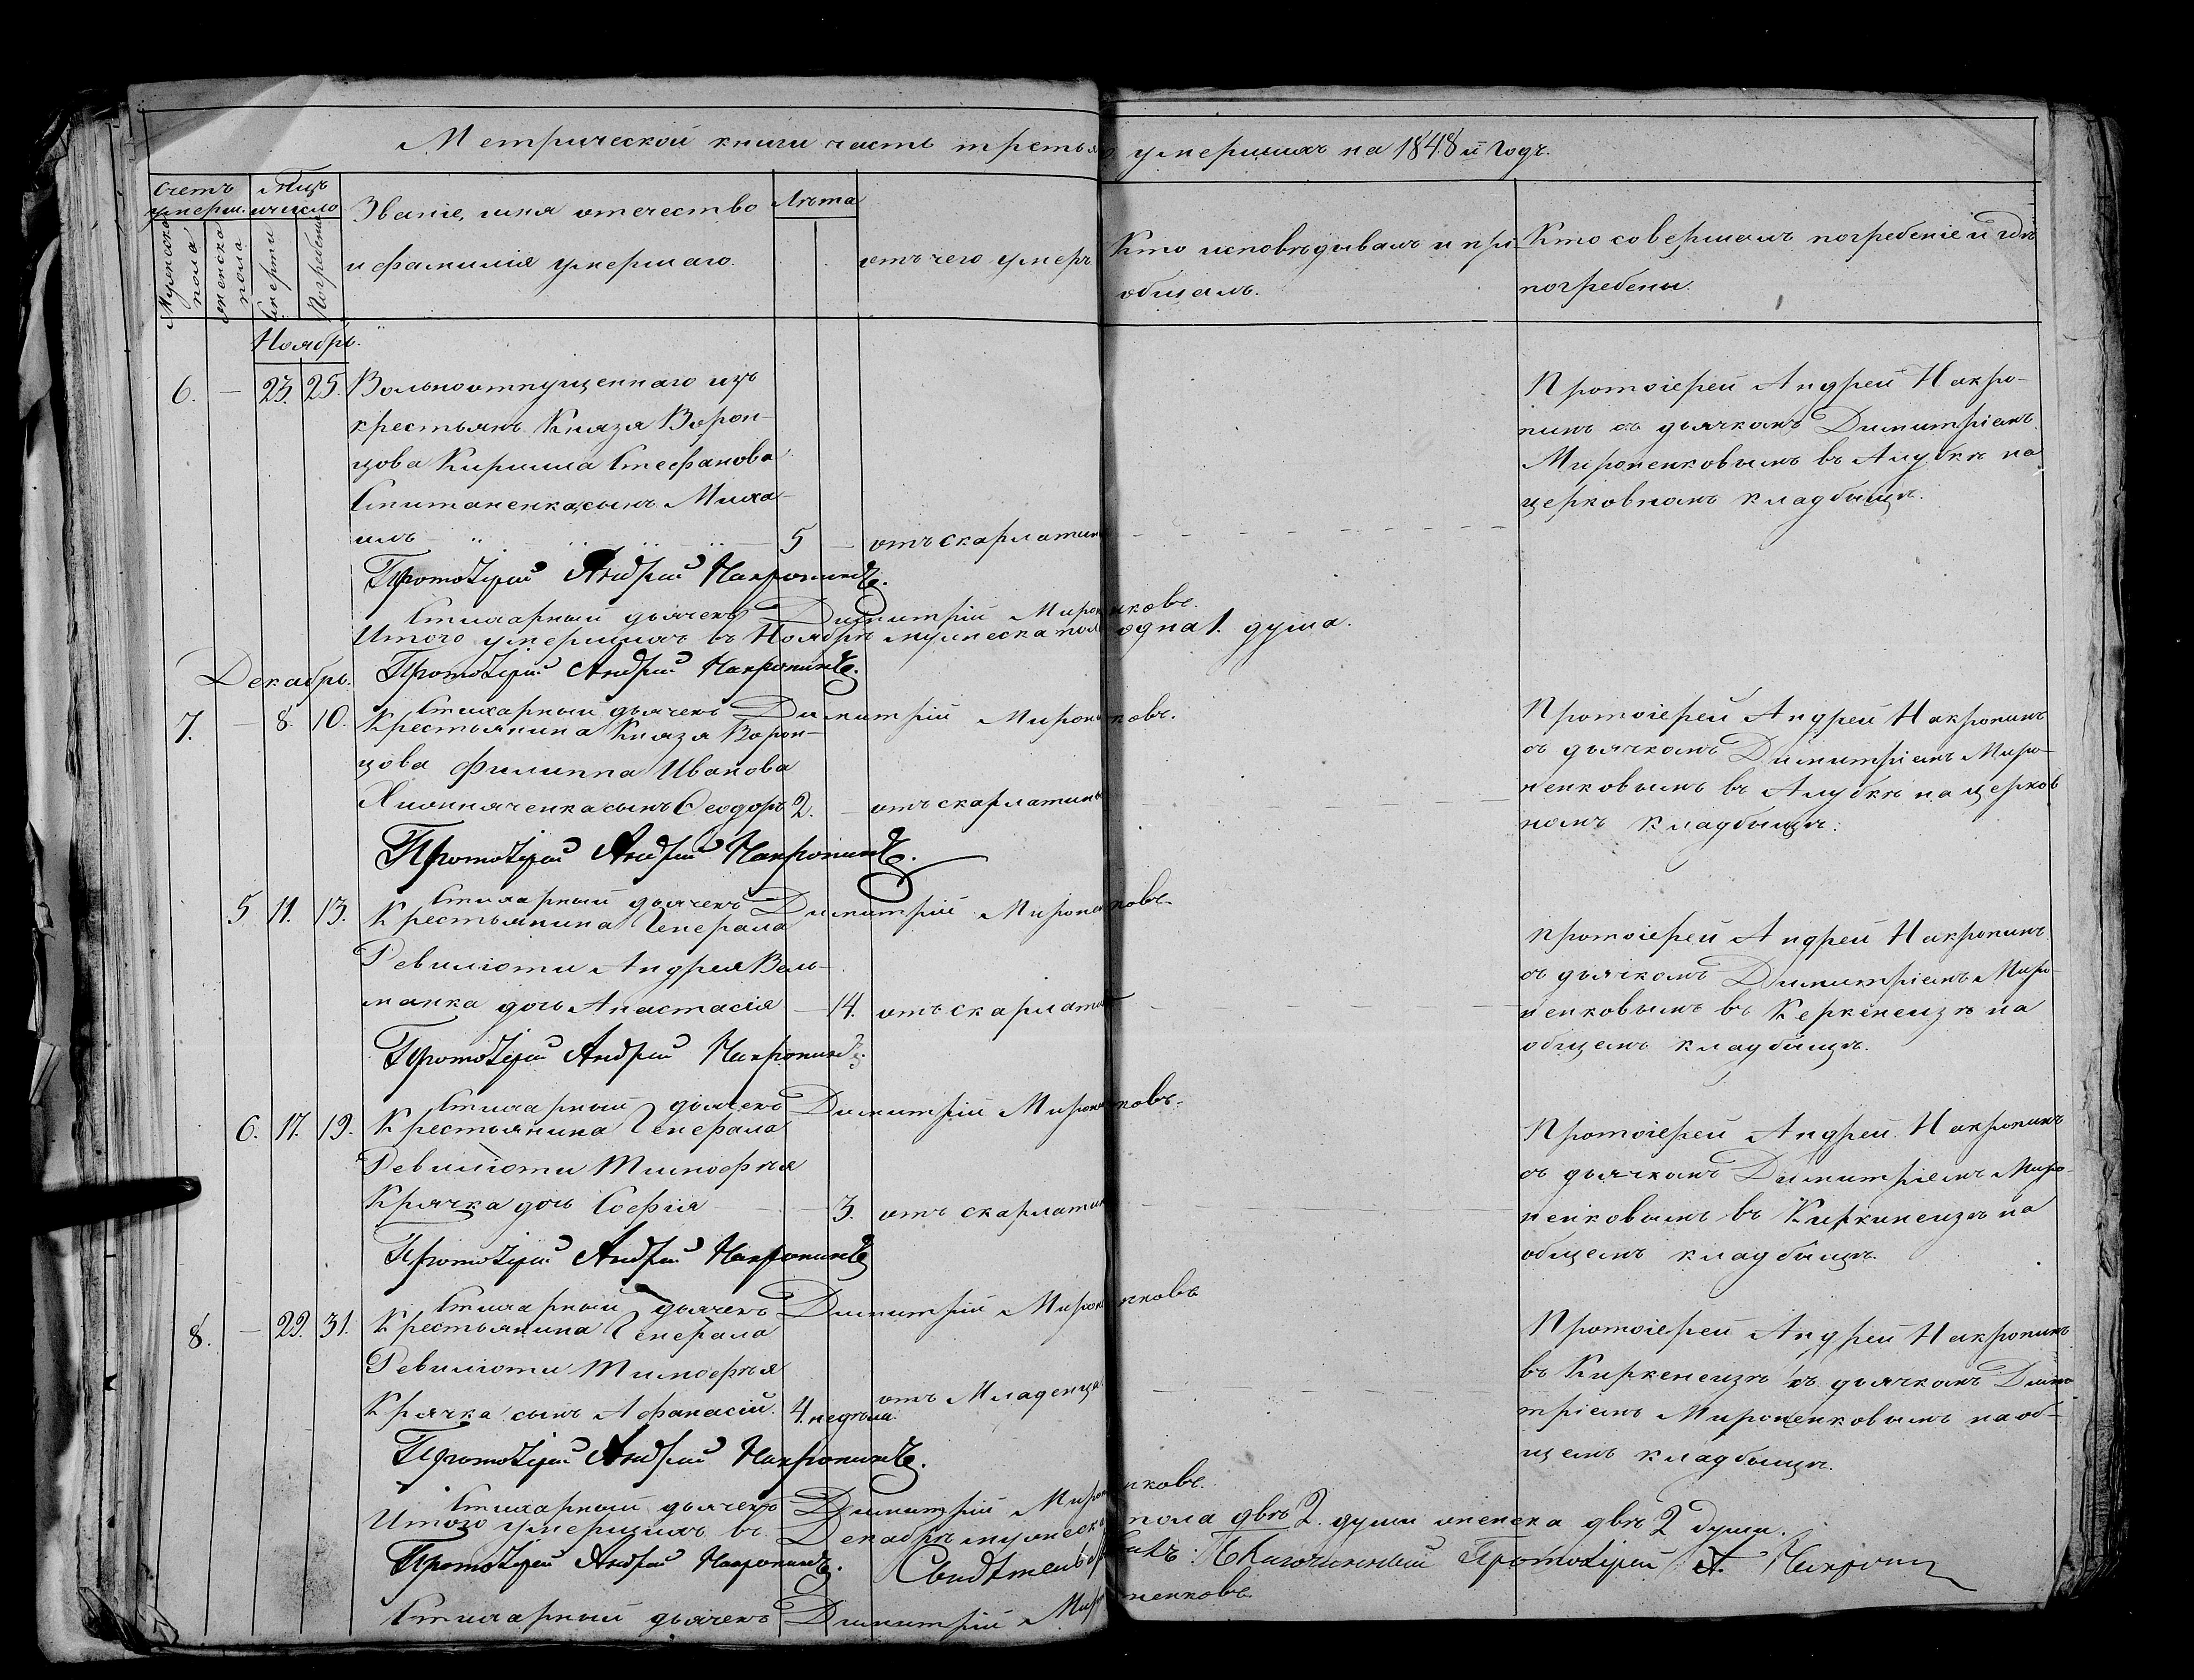 Метрической книги часть третья о умершихъ на 1848й годъ.
Счетъ умерш.
Мужеска пола
женска пола
Мѣц. и число
смерти
погребенія
Званіе, имя отечество
и фамилія умершаго.
Лѣта
отъ чего умеръ
Кто исповѣдывалъ и прі-
общалъ.
Кто совершалъ погребеніе и гдѣ
погребены.
Ноябрь.
6. — 23. 25. Вольноотпущеннаго изъ
крестьянъ Князя Ворон-
цова Кирилла Стефанова
сынъ Миха-
илъ — 5 — отъ скарлатины
Протоіерей Андрей Накропин-
пинъ съ дьячкомъ Димитріемъ
Мироненковымъ въ Алубкѣ на
церковномъ кладбищѣ.
Протоіерей Андрей Накропинъ.
Стихарный дьячекъ Димитрій Мироненковъ.
Итого умершихъ въ Ноябрѣ мужеска пола одна 1. душа.
Декабрь.
Протоіерей Андрей Накропинъ.
Стихарный дьячекъ Димитрій Мироненковъ.
7. — 8. 10. Крестьянина Князя Ворон-
цова Филиппа Иванова
сынъ Ѳеодоръ 2. — отъ скарлатины
Протоіерей Андрей Накропинъ
съ дьячкомъ Димитріемъ Миро-
ненковымъ въ Алубкѣ на церков
номъ кладбищѣ.
Протоіерей Андрей Накропинъ.
Стихарный дьячекъ Димитрій Мироненковъ.
5 11. 13. Крестьянина Генерала
Ревиліоти Андрея Воль-
манка дочь Анастасія — 14. отъ скарлатины
Протоіерей Андрей Накропинъ
съ дьячкомъ Димитріемъ Миро-
ненковымъ въ Керкенеизѣ на
общемъ кладбищѣ.
Протоіерей Андрей Накропинъ.
Стихарный дьячекъ Димитрій Мироненковъ.
6. 17. 19. Крестьянина Генерала
Ревиліоти Тимофѣя
Крячка дочь Софія — 3. отъ скарлатины
Протоіерей Андрей Накропинъ
съ дьячкомъ Димитріемъ Миро-
ненковымъ въ Киркинеизѣ на
общемъ кладбищѣ.
Протоіерей Андрей Накропинъ
Стихарный дьячекъ Димитрій Мироненковъ
8. — 29. 31. Крестьянина Генерала
Ревиліоти Тимофѣя
Крячка сынъ Афанасій. 4. недѣли. отъ Младенца
Протоіерей Андрей Накропинъ
въ Киркенеизѣ съ дьячкомъ Дими
тріемъ Мироненковымъ на об-
щемъ кладбищѣ.
Протоіерей Андрей Накропинъ.
Стихарный дьячекъ Димитрій Мироненковъ.
Итого умершихъ въ Декабрѣ мужеска пола двѣ 2. души женска двѣ 2 души.
Протоіерей Андрей Накропинъ. Благочинный Протоіерей А. Накропин
Стихарный дьячекъ Димитрій Мироненковъ.